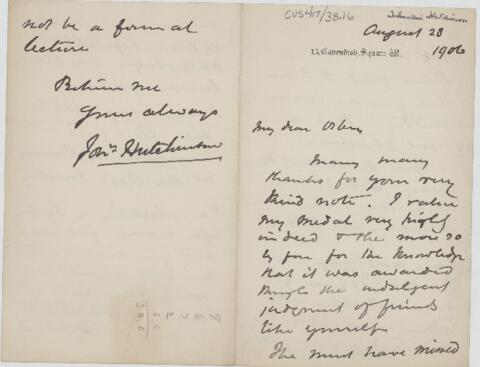 not be a formal
lecture
Believe me
Yours always
Jon. Hutchinson
CUS417/38.16
Jonathan Hutchinson
August 28
15, Cavendish Square, W.
1906
My dear
Many many
thanks for your very
kind note. I value
my medal very highly
indeed & the more so
by far for the knowledge
that it was awarded
through the indulgent
judgment of friends
like yourself
must have missed